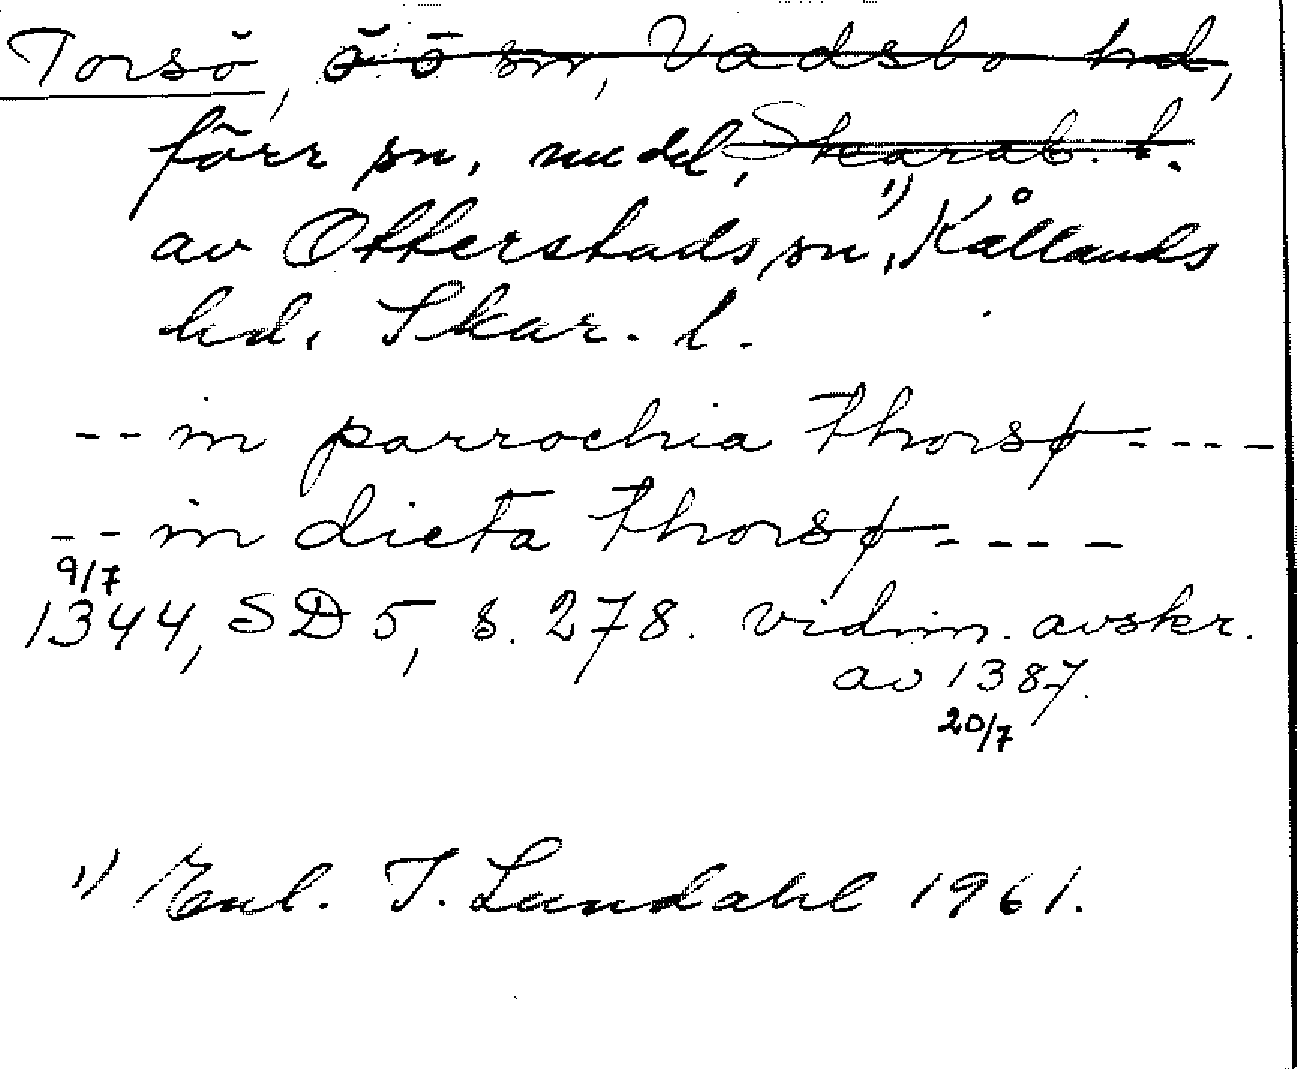 Torsö, ö ö sn, Vadsbo hd,
förr sn, nu del, Skarab. l.
av Otterstads sn, 1) Kållands
hd. Skar. l.
-- in parrochia Thorsø ----
-- in dicta Thorsø ----
9/7
1344, SD 5, s. 278. vidim. avskr.
av 1387.
20/7
1) Enl. I. Lundahl 1961.